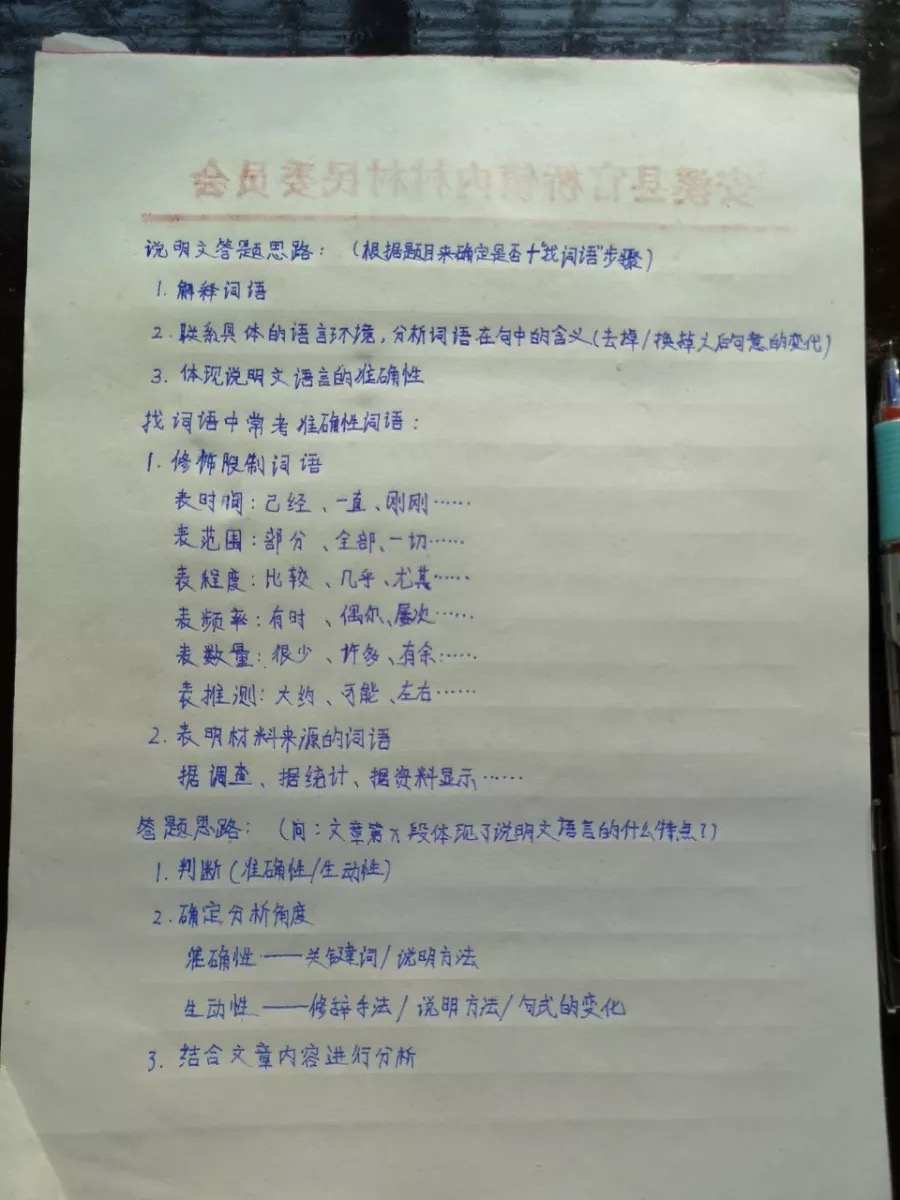 安溪县官桥镇内村村民委员会
说明文答题思路：（根据题目来确定是否+“找词语”步骤）
1. 解释词语
2. 联系具体的语言环境，分析词语在句中的含义（去掉/换掉之后句意的变化）
3. 体现说明文语言的准确性
找词语中常考准确性词语：
1. 修饰限制词语
表时间：已经、一直、刚刚……
表范围：部分、全部、一切……
表程度：比较、几乎、尤其……
表频率：有时、偶尔、屡次……
表数量：很少、许多、有余……
表推测：大约、可能、左右……
2. 表明材料来源的词语
据调查、据统计、据资料显示……
答题思路：（问：文章第x段体现了说明文语言的什么特点？）
1. 判断（准确性/生动性）
2. 确定分析角度
准确性——关键词/说明方法
生动性——修辞手法/说明方法/句式的变化
3. 结合文章内容进行分析